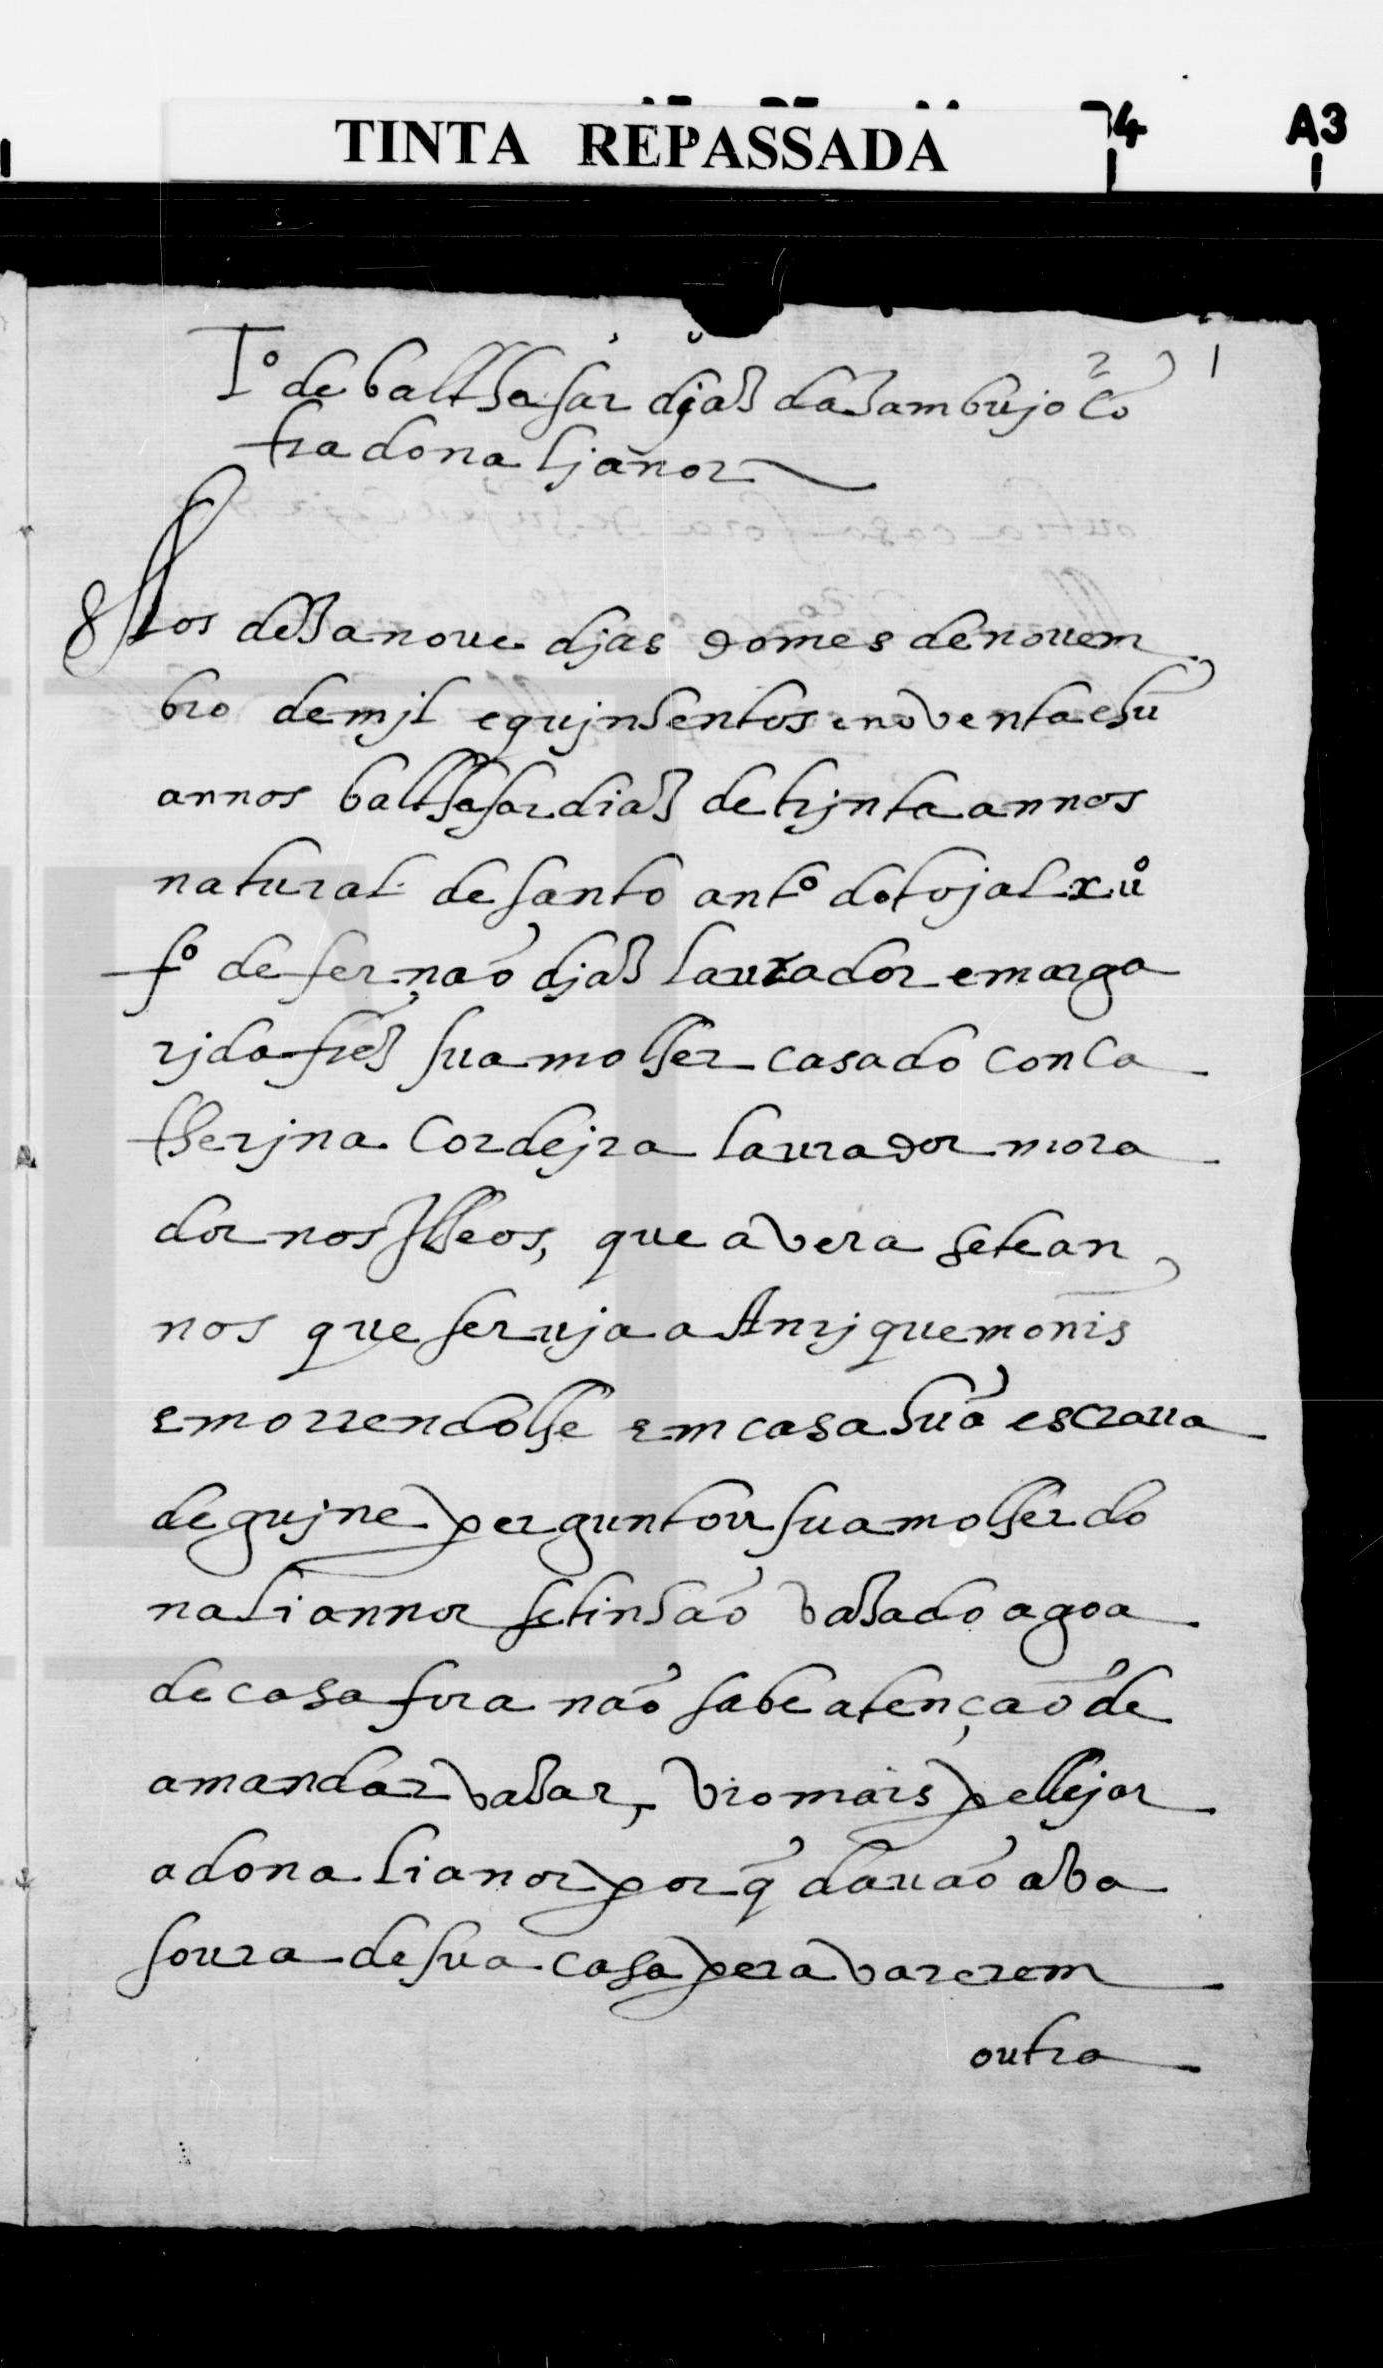 74 A3
TINTA REPASSADA
2 1
Tº de balthesar djaz dazambujo Cõ
tra dona ljanor
Aos dezanoue djas do mes de nouem
bro de mjl e qujnhentos e noventa e hũ
annos balthesar diaz de trjnta annos
natural de santo antº do tojal xũº
fº de fernão djaz laurador e marga
rjda frēz sua molher casado con Ca
therjna Cordejra laurador mora
dor nos Ilheos, que avera sete an
nos que seruja a Anrjque monis
e morrendolhe em casa hũa escraua
de gujne perguntou sua molher do
na liannor se tinhão vazado agoa
de casa fora não sabe a tenção de
a mandar vazar, vio mais pellejar
a dona lianor por q̃ dauão a ba
soura de sua casa pera varerem
outra